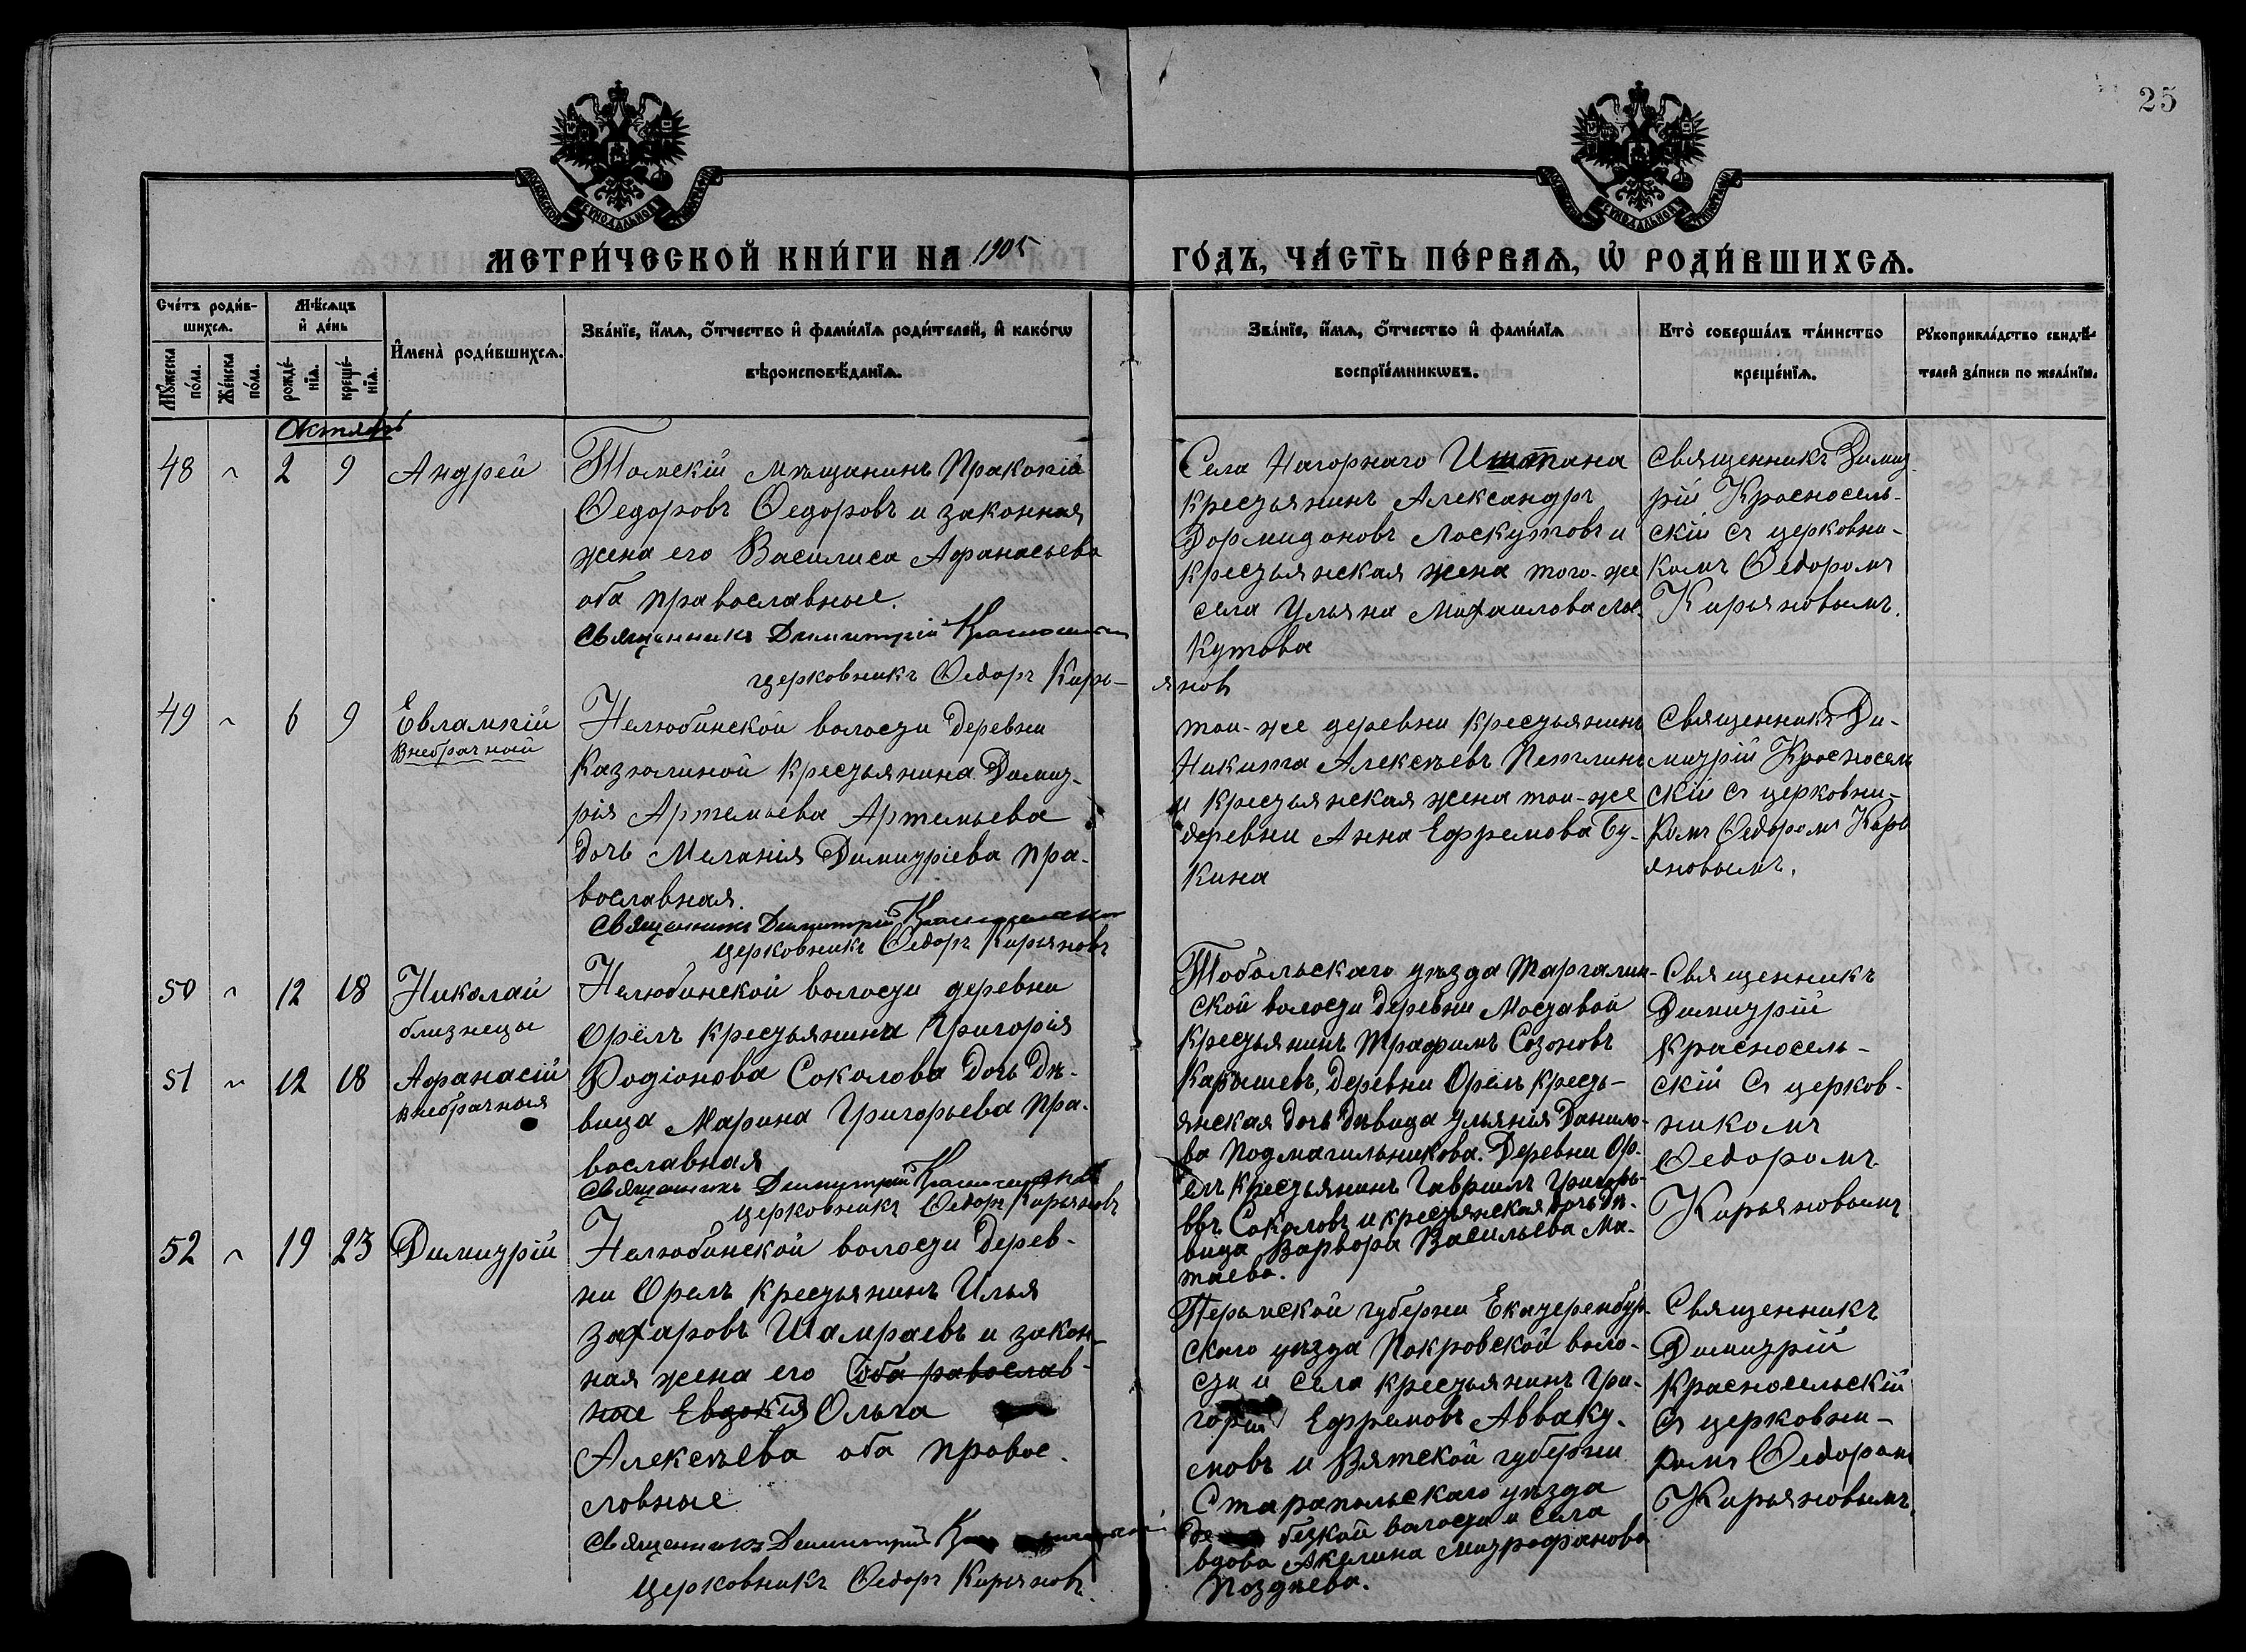 25
МЕТРИ́ЧЕСКОЙ КНИ́ГИ НА 1905
ГО́ДЪ, ЧА́СТЬ ПЕ́РВАѦ, Ѡ҆ РОДИ́ВШИХСѦ.
Сче́тъ роди́в-
шихсѧ.
Мꙋ́жеска по́ла.
Же́нска по́ла.
Мѣ́сѧцъ
и҆ де́нь
рожде́-
нїѧ.
креще́-
нїѧ.
И҆мена̀ роди́вшихсѧ.
Зва́нїе, и҆́мѧ, ѻ҆́тчество и҆ фами́лїѧ роди́телей, и҆ како́гѡ
вѣроисповѣ́данїѧ.
Зва́нїе, и҆́мѧ, ѻ҆́тчество и҆ фами́лїѧ
воспрїе́мникѡвъ.
Кто̀ соверша́лъ та́инство
креще́нїѧ.
Рꙋкоприкла́дство свидѣ́-
телей за́писи по жела́нїю.
Октябрь
48 " 2 9 Андрей
Томскій мѣщанинъ Пракопій
Ѳедоровъ Ѳедоровъ и законная
жена его Василиса Афанасьева
оба православные.
Священникъ Димитрій Красносельскій
церковникъ Ѳедоръ Кирь-
яновъ
Села Нагорнаго Иштана
крестьянинъ Александръ
Дормидоновъ Лоскутовъ и
крестьянская жена того-же
села Ульяна Михаилова Лос-
кутова
Священникъ Димит
рій Красносель-
скій съ церковни-
комъ Ѳедоромъ
Кирьяновымъ.
49 " 6 9 Евлампій
Внебрачный
Нелюбинской волости деревни
Казюлиной крестьянина Димит-
рія Артемьева Артемьева
дочь Меланія Димитріева пра-
вославная.
Священникъ Димитрій Красносельскій
церковникъ Ѳедоръ Кирьяновъ
той-же деревни крестьянинъ
Никита Алексѣевъ Петлинъ
и крестьянская жена той-же
деревни Анна Ефремова Бу-
кина
Священникъ Ди-
митрій Красносель
скій съ церковни-
комъ Ѳедоромъ Кирь
яновымъ.
50 " 12 18 Николай
близнецы
51 " 12 18 Афанасій
внебрачныя
Нелюбинской волости деревни
Орёлъ крестьянина Григорія
Родіонова Соколова дочь дѣ-
вица Марина Григорьева пра-
вославная
Священникъ Димитрій Красносельскій
церковникъ Ѳедоръ Кирьяновъ
Тобольскаго уѣзда Таргалин-
ской волости деревни Мостовой
крестьянинъ Трафимъ Созоновъ
Карышевъ, деревни Орёлъ кресть-
янская дочь дѣвица Ульянія Данило-
ва Подмагильникова. Деревни Ор-
елъ крестьянинъ Гавріилъ Григорь-
евъ Соколовъ и крестьянская дочь дѣ-
вица Варвора Васильева Ма-
таева.
Священникъ
Димитрій
Красносель-
скій съ церков-
никомъ
Ѳедоромъ
Кирьяновымъ
52 " 19 23 Димитрій
Нелюбинской волости дерев-
ни Орелъ крестьянинъ Илья
Захаровъ Шамраевъ и закон-
ная жена его оба равослав-
ные Евдокія Ольга
Алексѣева оба правос-
ловные
Священникъ Димитрій
церковникъ Ѳедоръ Кирьяновъ.
Пермской губерни Екатеренбур-
скаго уѣзда Покровской воло-
сти и села крестьянинъ Гри-
горій Ефремовъ Авваку-
мовъ и Вятской губерни
Старапольскаго уѣзда
безкой волости и села
вдова Акулина Митрофанова
Позднева.
Священникъ
Димитрій
Красносельскій
съ церковни-
комъ Ѳедоромъ
Кирьяновымъ.